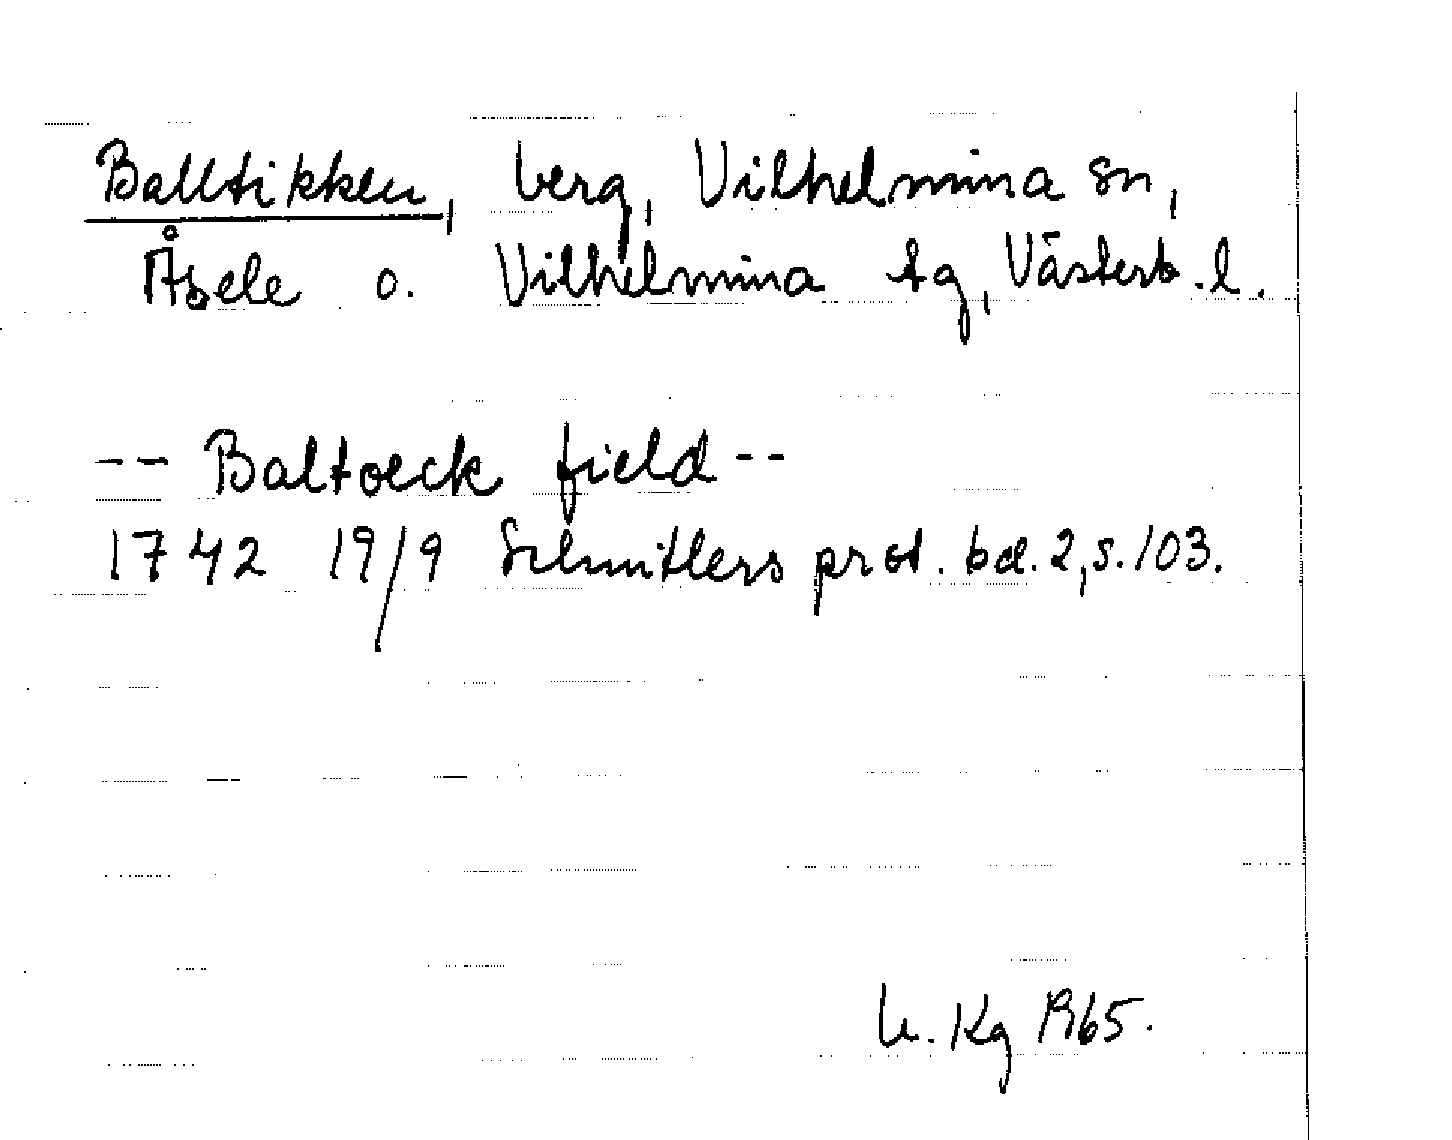 Balltikken, berg, Vilhelmina sn,
Åsele o. Vilhelmina tg, Västerb.l.
-- Baltoeck field --
1742 19/9 Schnitlers prot. bd. 2, s. 103.
Kg 1965.